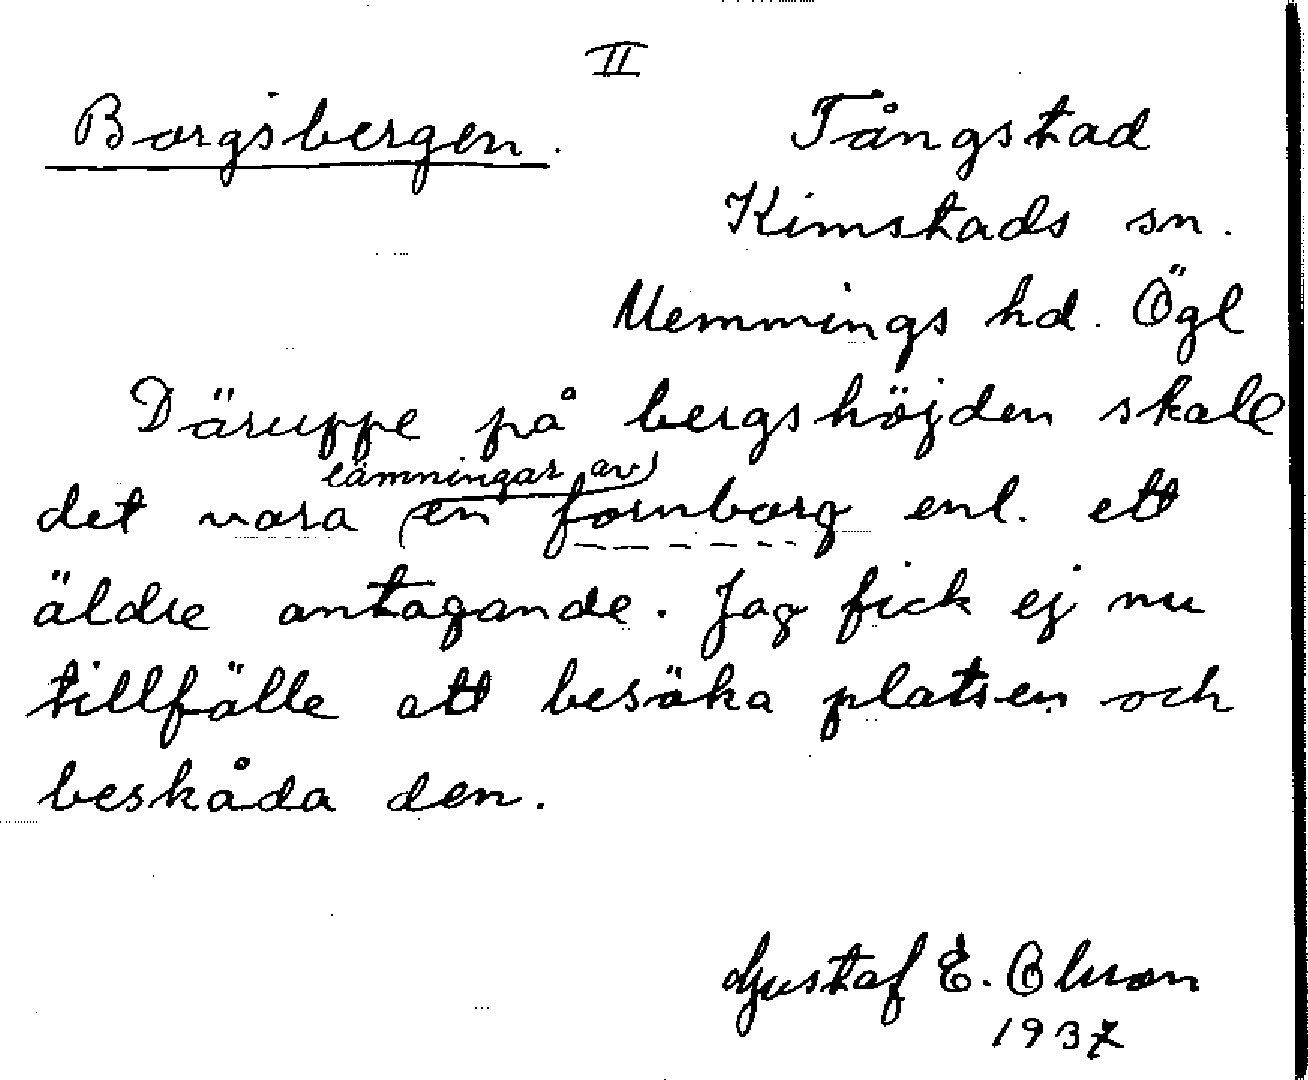 II
Borgsbergen. Tångstad
Kimstads sn.
Memmings hd. Ögl
Däruppe på bergshöjden skall
lämningar av
det vara (en fornborg enl. ett
äldre antagande. Jag fick ej nu
tillfälle att besöka platsen och
beskåda den.
Gustaf E. Olsson
1937